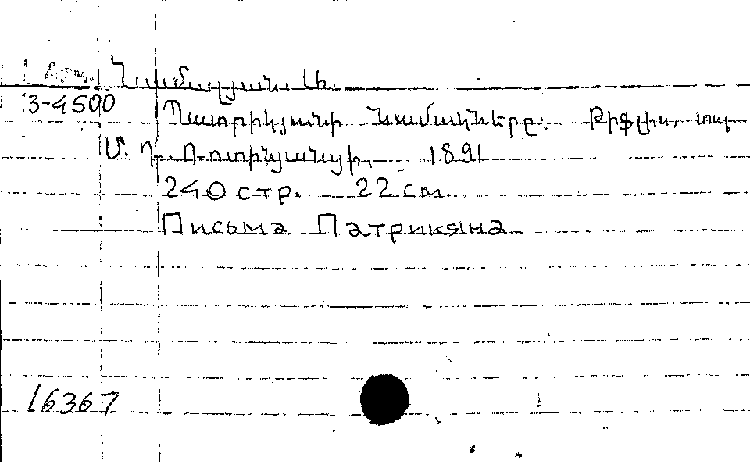 Նամալյան Ս.
3-4500 Պատրիկյանի նամակները. Թիֆլիս, տպ.
Մ. Դ. Ռոտինյանցի, 1891
240 стр. 22 см.
Письма Патрикяна
16367